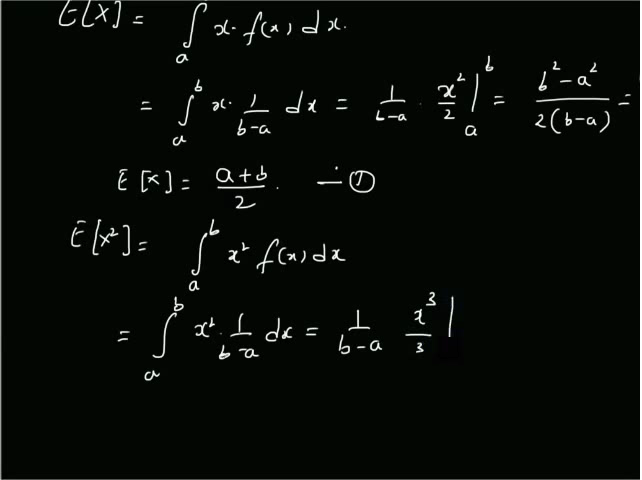 E[X] = ∫ₐ x·f(x) dx.
= ∫ₐᵇ x·1/(b-a) dx = 1/(b-a) · x²/2 |ₐᵇ = (b²-a²)/(2(b-a)) =
E[X] = (a+b)/2. — ①
E[X²] = ∫ₐᵇ x² f(x) dx
= ∫ₐᵇ x²·1/(b-a) dx = 1/(b-a) x³/3 |